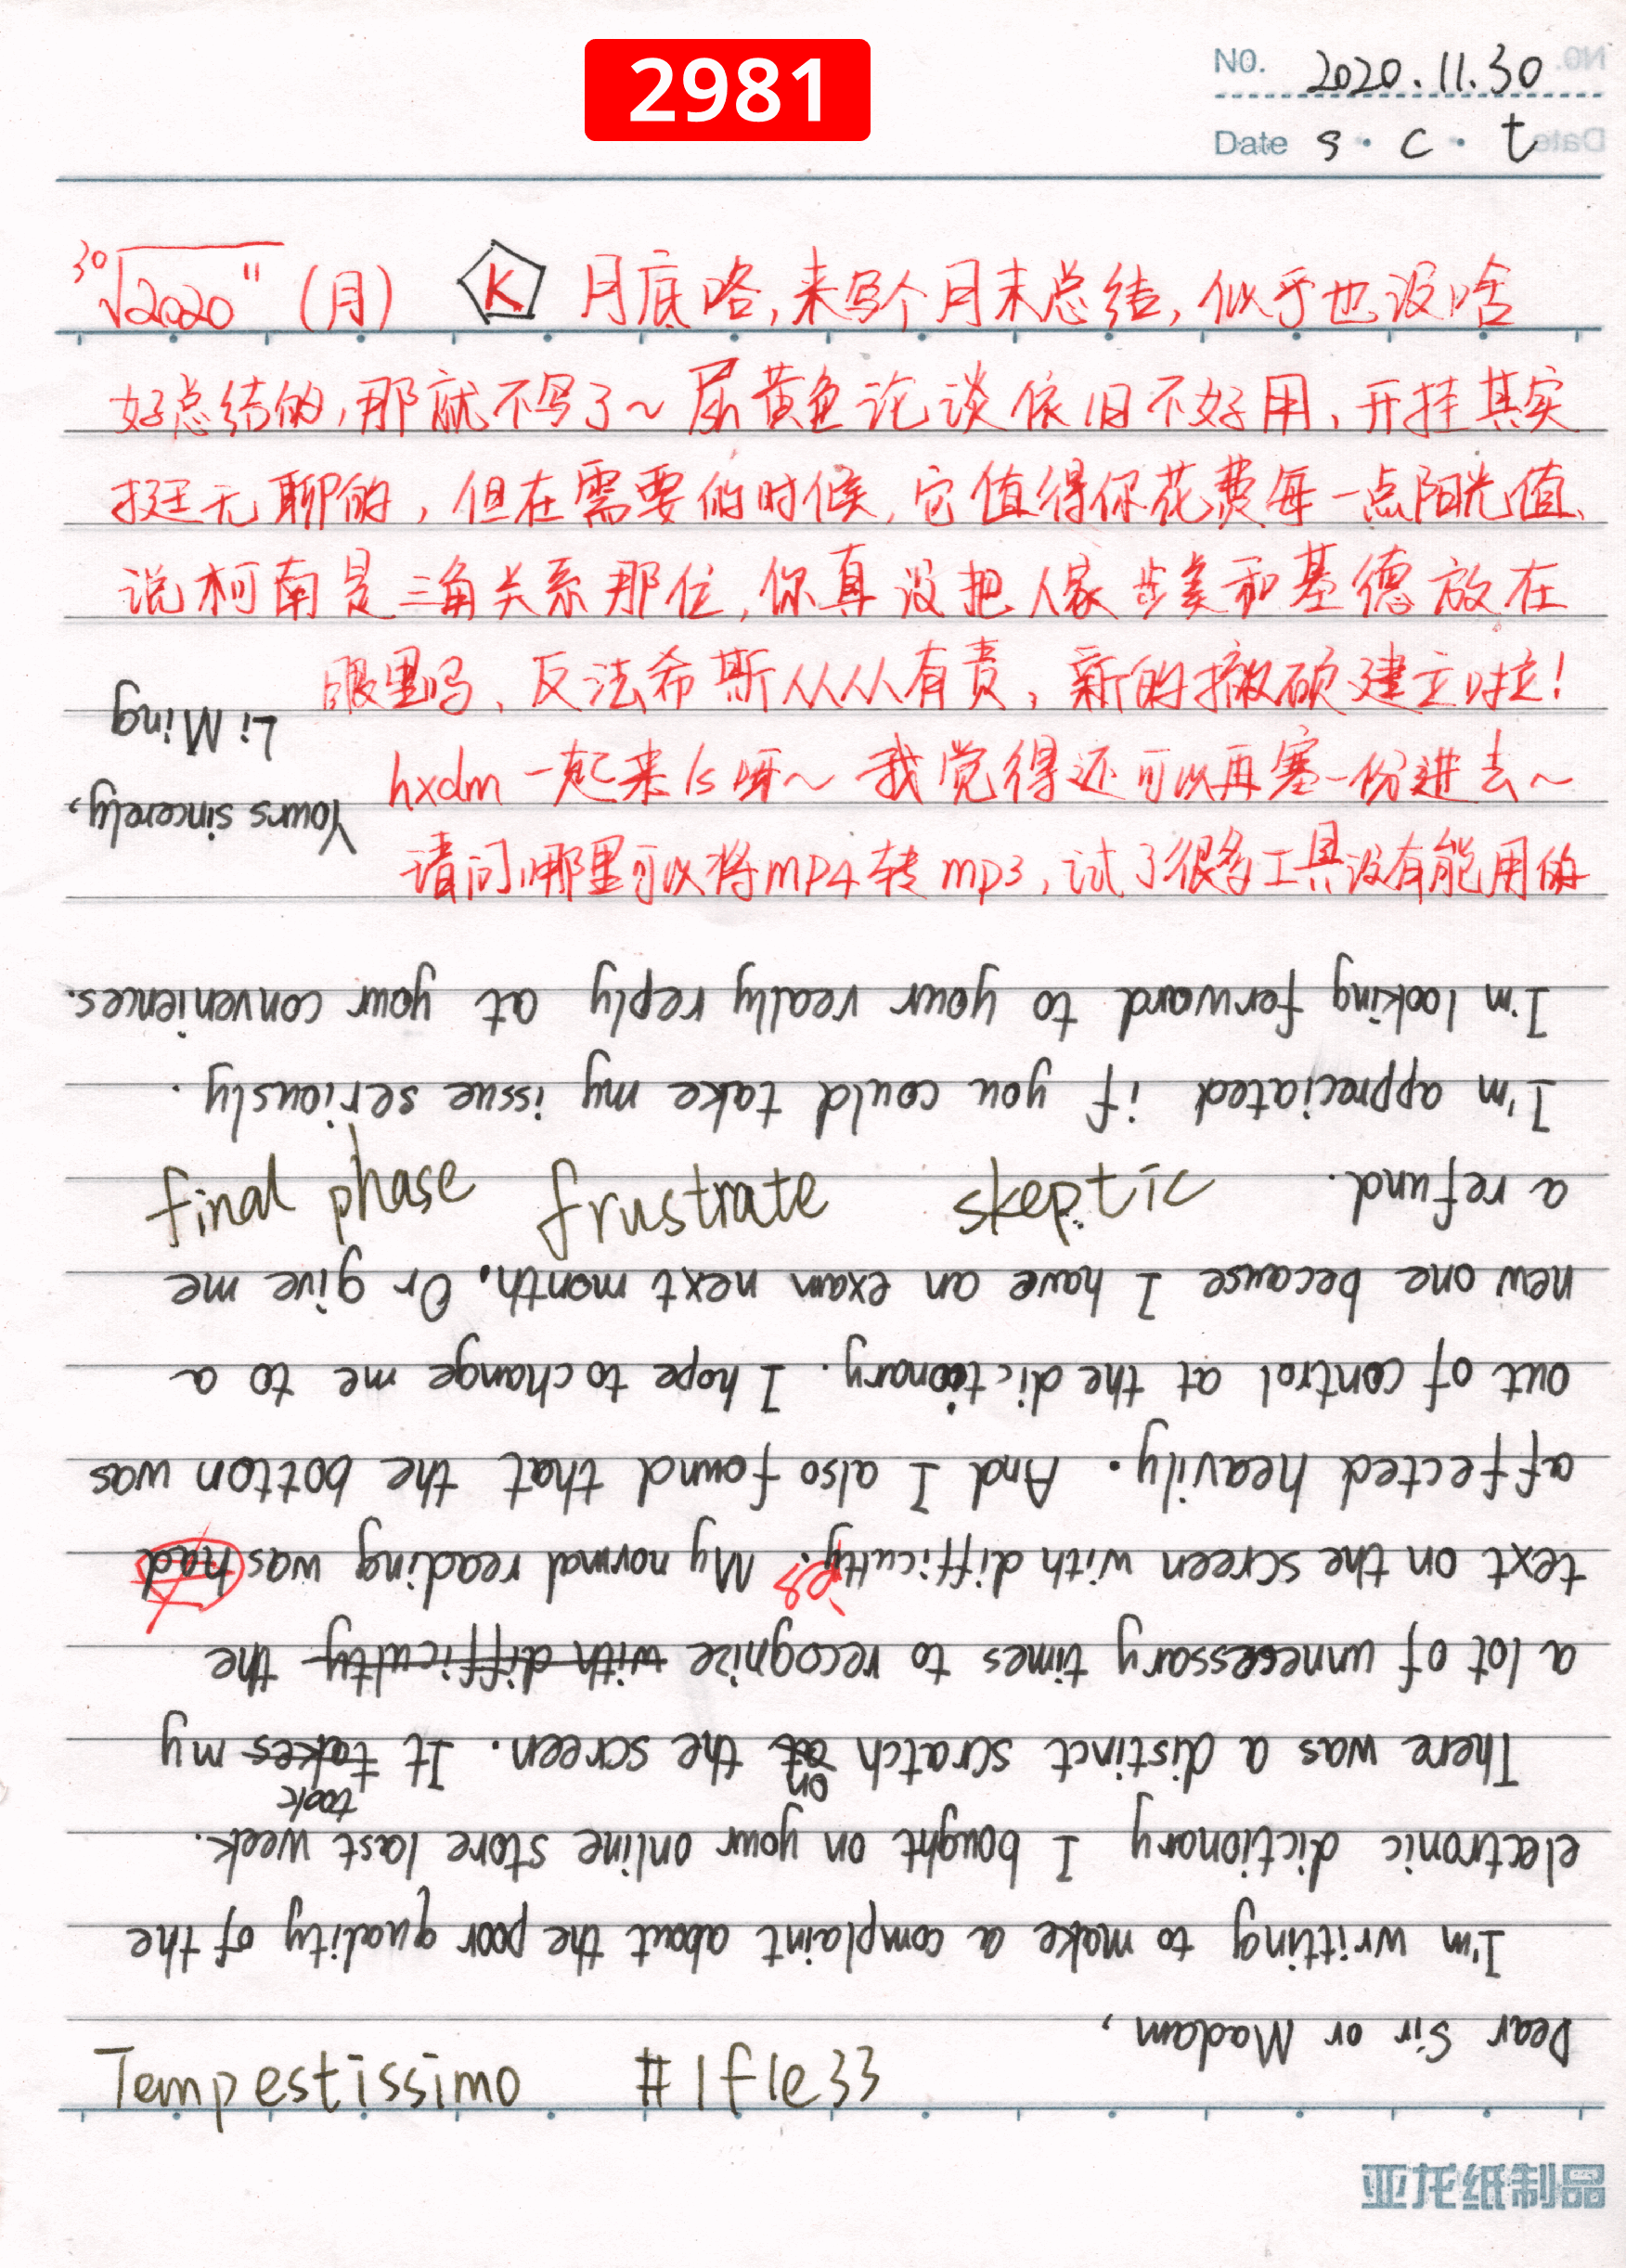 2981
N0. 2020.11.30
Date s · c · t
³⁰√2020¹¹ (月) K 月底咯,来写个月末总结,似乎也没啥
好总结的,那就不写了~ 尿黄色论谈依旧不好用,开挂其实
挺无聊的,但在需要的时候,它值得你花费每一点阳光值、
说柯南是三角关系那位,你真没把人家步美和基德放在
眼里吗、反法希斯从从有责,新的撤硕建立啦!
hxdm 一起来ls呀~ 我觉得还可以再塞一份进去~
请问哪里可以将mp4转mp3,试了很多工具没有能用的
final phase frustrate skeptic
Tempestissimo #1f1e33
Dear Sir or Madam,
I'm writting to make a complaint about the poor quality of the
electronic dictionary I bought on your online store last week.
There was a distinct scratch at on the screen. It takes took my
a lot of unnecessary times to recognize with difficulty the
text on the screen with difficulty. My normal reading was had
affected heavily. And I also found that the botton was
out of control at the dictionary. I hope to change me to a
new one because I have an exam next month. Or give me
a refund.
I'm appreciated if you could take my issue seriously.
I'm looking forward to your really reply at your conveniences.
Yours sincerely,
Li Ming
亚龙纸制品